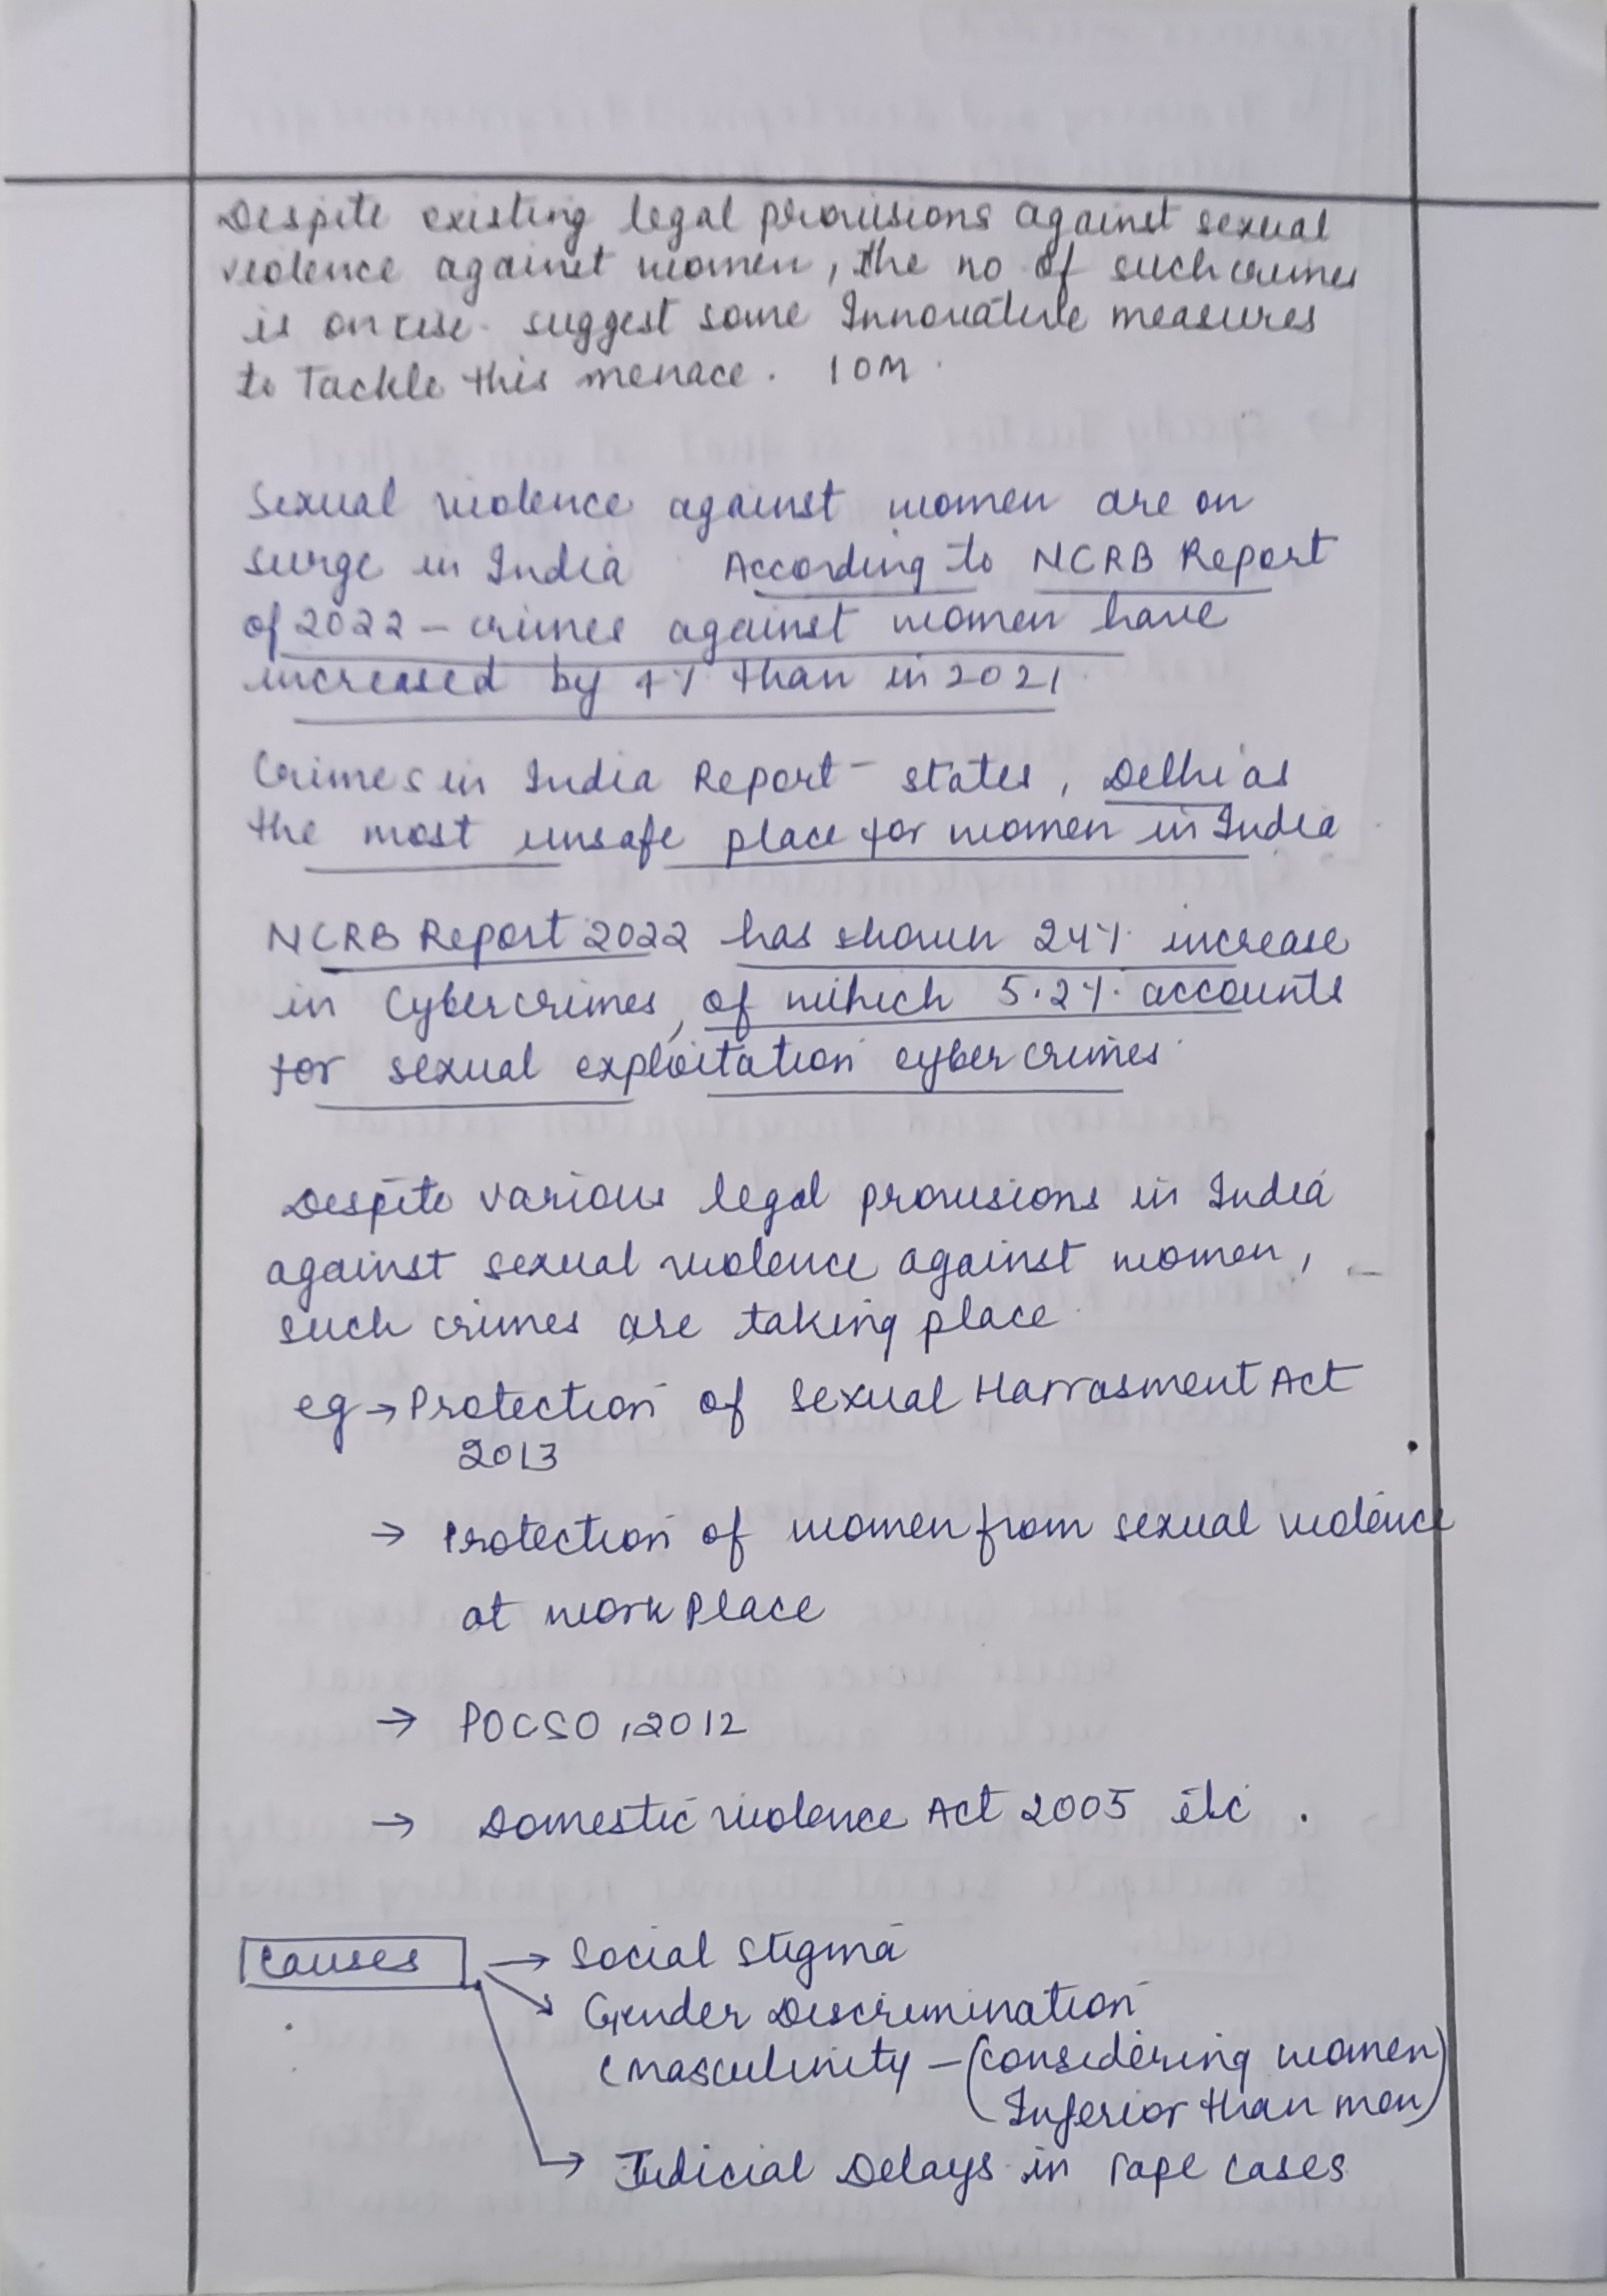 Despite existing legal provisions against sexual
violence against women, the no of such crimes
is on rise. suggest some Innovative measures
to Tackle this menace. 10M.
Sexual violence against women are on
surge in India According to NCRB Report
of 2022 - crimes against women have
increased by 4% than in 2021
Crimes in India Report - states, Delhi as
the most unsafe place for women in India.
NCRB Report 2022 has shown 24% increase
in Cybercrimes, of which 5.2% accounts
for sexual exploitation cyber crimes.
Despite various legal provisions in India
against sexual violence against women,
such crimes are taking place
eg → Protection of Sexual Harrasment Act
2013
→ Protection of women from sexual violence
at work place
→ POCSO, 2012
→ Domestic violence Act 2005 etc.
Causes → Social Stigma
Gender Discrimination
(Masculinity - (considering women
Inferior than men)
→ Judicial Delays in rape cases